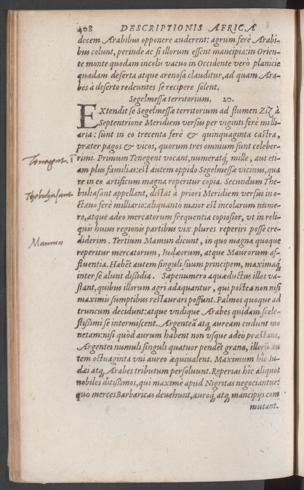 408 DESCRIPTIONIS AFRICÆ
decem Arabibus opponere auderent: agrum ferè Arabi-
bus colunt, perinde ac si illorum essent mancipia: in Orien-
te monte quodam incolis vacuo in Occidente verò planicie
quadam deserta atque arenosa clauditur, ad quam Ara-
bes à deserto redeuntes se recipere solent.
Segelmessæ territorium. 20.
EXtendit se Segelmessæ territorium ad flumen Ziz à
Septentrione Meridiem versus per viginti ferè millia-
ria: sunt in eo trecenta ferè & quinquaginta castra,
præter pagos & vicos, quorum tres omnium sunt celeber-
rimi. Primum Tenegent vocant, numeratq́ mille, aut eti-
am plus familias: est autem oppido Segelmessæ vicinus, qua-
re in eo artificum magna reperitur copia. Secundum The-
buhasant appellant, distat à priori Meridiem versus in o-
ctavo ferè milliario: aliquanto maior est incolarum nume-
ro, atque adeo mercatorum frequentia copiosior, vt in reli-
qui huius regionis partibus vix plures reperiri posse cre-
diderim. Tertium Mamun dicunt, in quo magna quoque
reperitur mercatorum, Iudæorum, atque Maurorum af-
fluentia. Habẽt autem singuli suum principem, maximaq́
inter se alunt dissidia. Sæpenumero aquæductus illos va-
stant, quibus illorum agri adaquantur, qui postea non nisi
maximis sumptibus restaurari possunt. Palmes quoque ad
truncum decidunt: atque vndique Arabes quidam scele-
stissimi se intermiscent. Argenteā atq́ auream cudunt mo-
netam: nisi quòd aurum habent non vsque adeo præstans.
Argentei numuli singuli quatuor pendẽt grana, illorũ au-
tem octuaginta vni aureo æquivalent. Maximum hîc Iu-
dæi atq́ Arabes tributum persoluunt. Reperias hîc aliquot
nobiles ditissimos, qui maximè apud Nigritas negociantur:
quo merces Barbaricas devehunt, auroq́ atq́ mancipijs com
mutant.
Mamun